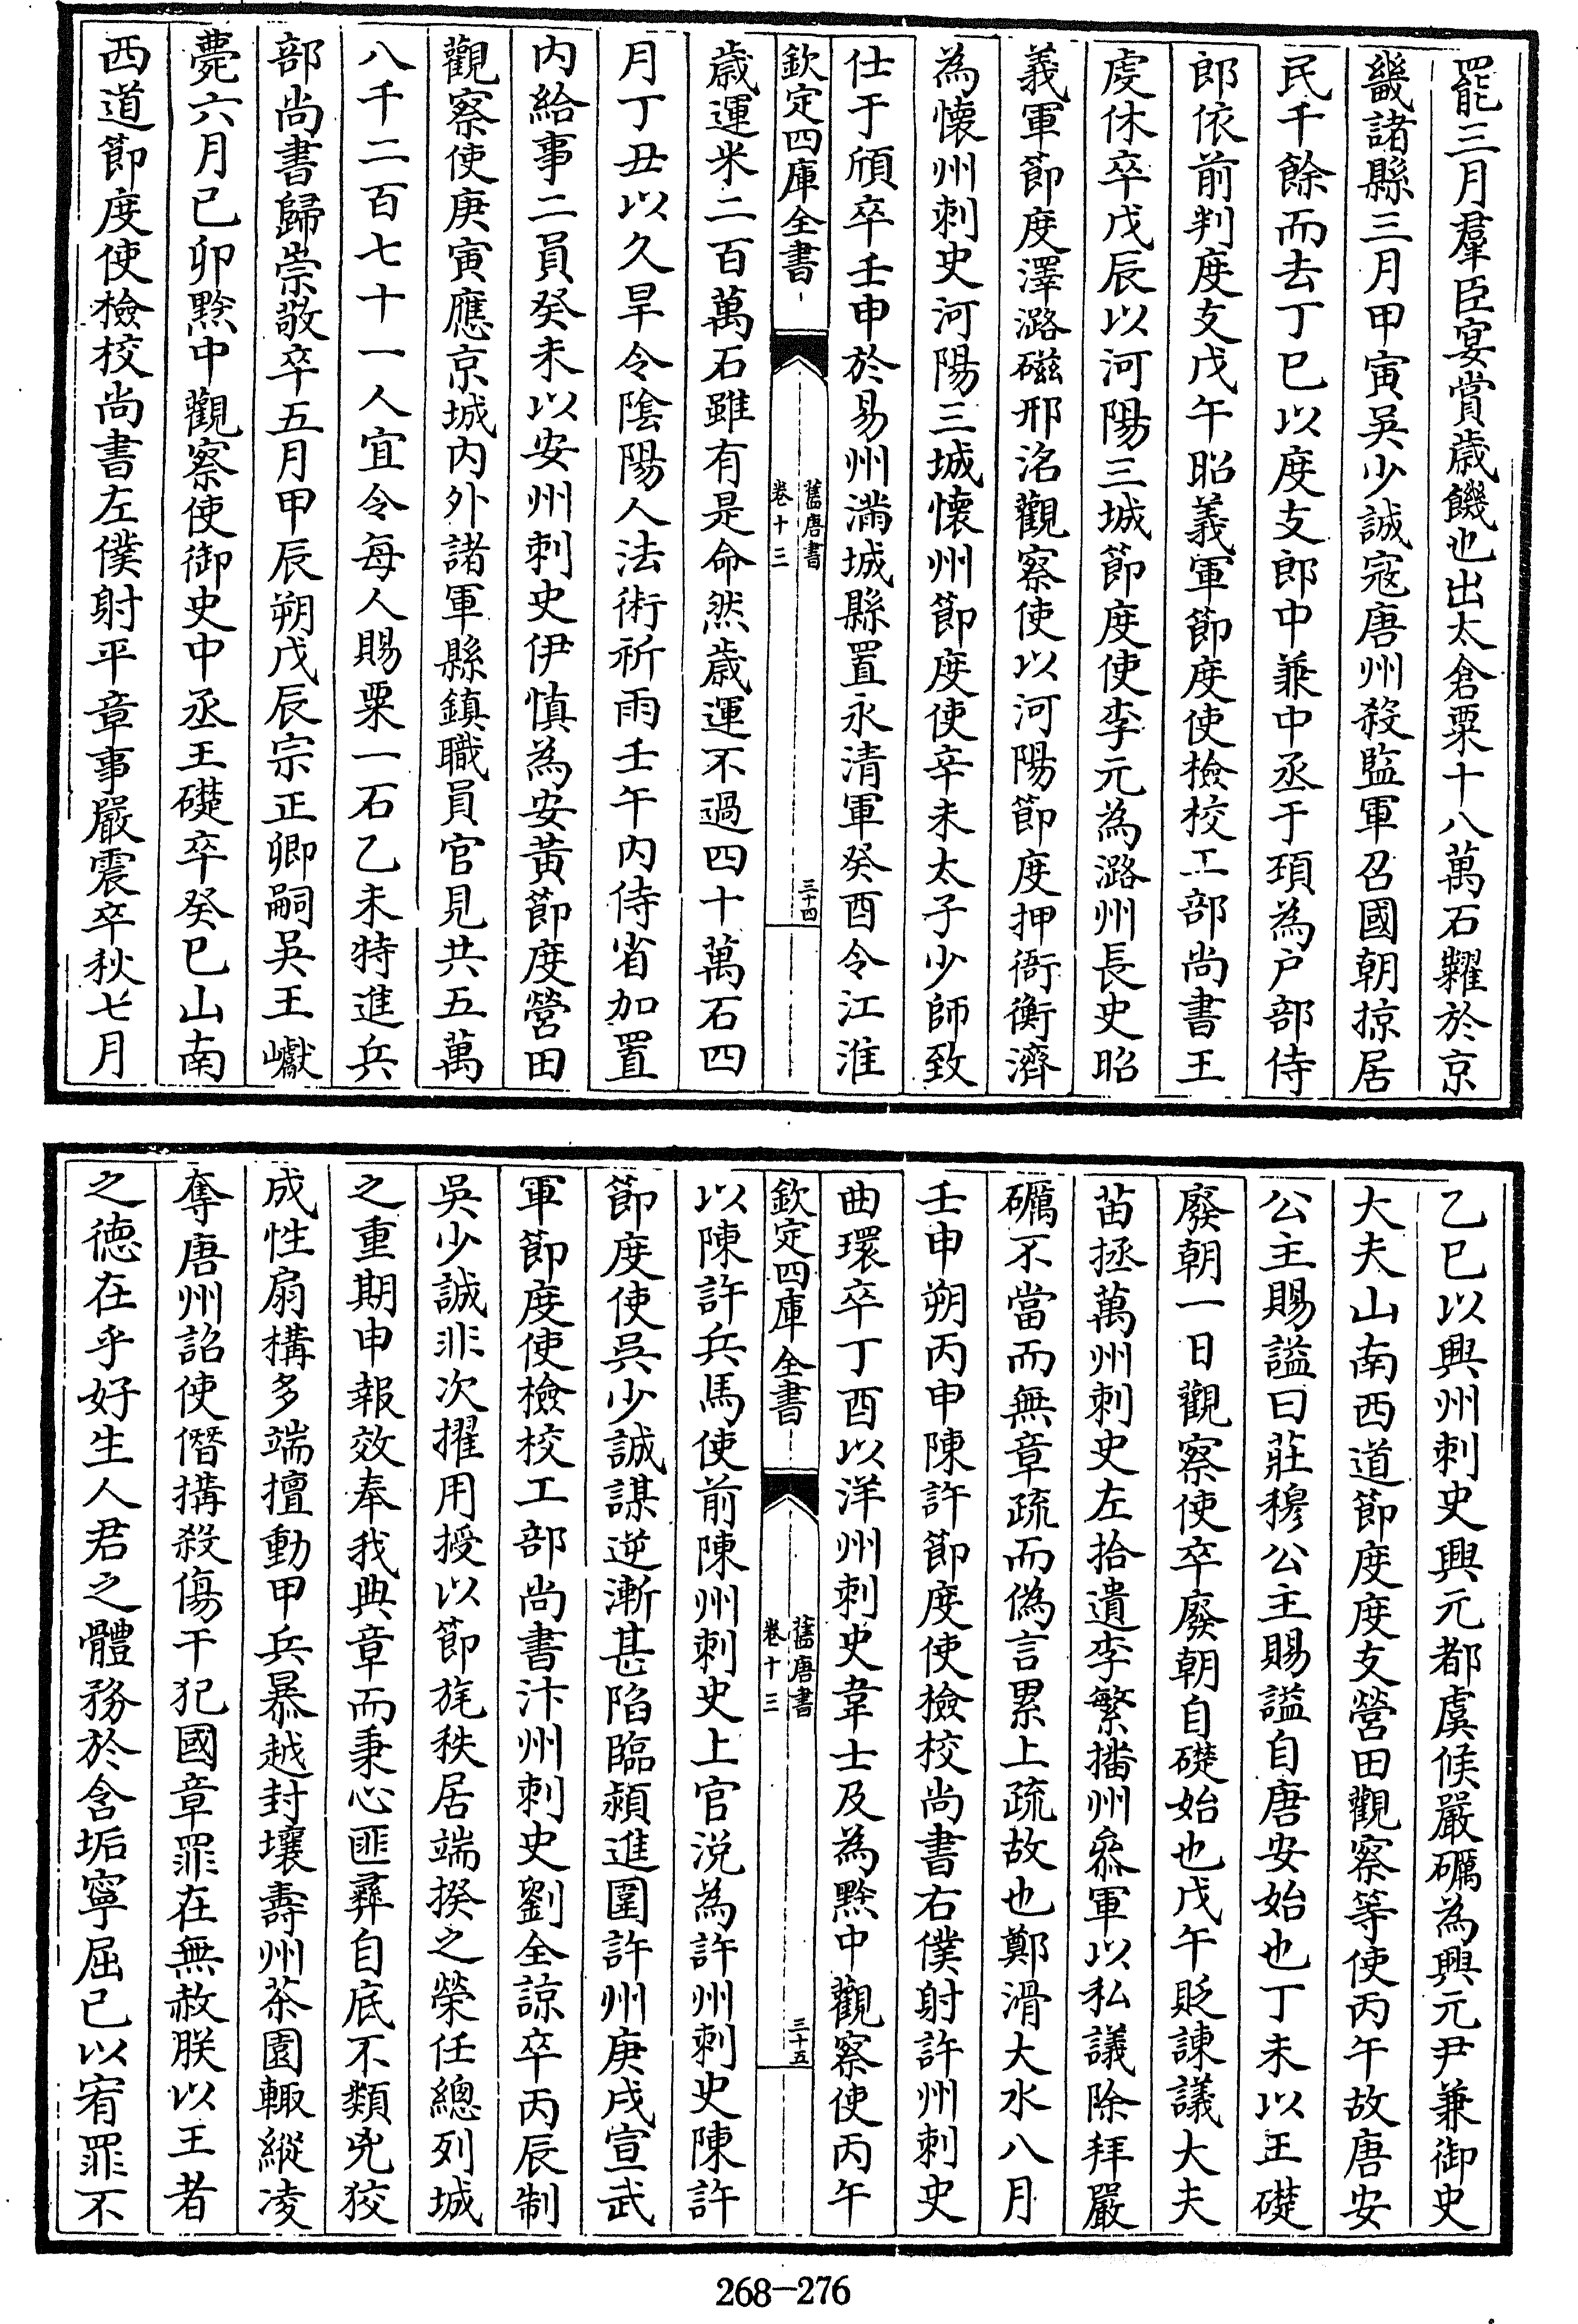 罷三月羣臣宴賞歲饑也出太倉粟十八萬石糶於京
畿諸縣三月甲寅吳少誠寇唐州殺監軍召國朝掠居
民千餘而去丁巳以度支郎中兼中丞于頊為户部侍
郎依前判度支戊午昭義軍節度使檢校工部尚書王
虔休卒戊辰以河陽三城節度使李元為潞州長史昭
義軍節度澤潞磁邢洺觀察使以河陽節度押衙衡濟
為懷州刺史河陽三城懷州節度使辛未太子少師致
仕于頎卒壬申於易州滿城縣置永清軍癸酉令江淮
欽定四庫全書
舊唐書
卷十三
三十四
歲運米二百萬石雖有是命然歲運不過四十萬石四
月丁丑以久旱令陰陽人法術祈雨壬午内侍省加置
内給事二員癸未以安州刺史伊慎為安黃節度營田
觀察使庚寅應京城内外諸軍縣鎮職員官見共五萬
八千二百七十一人宜令每人賜粟一石乙未特進兵
部尚書歸崇敬卒五月甲辰朔戊辰宗正卿嗣吳王巘
薨六月己卯黔中觀察使御史中丞王礎卒癸巳山南
西道節度使檢校尚書左僕射平章事嚴震卒秋七月
乙巳以興州刺史興元都虞候嚴礪為興元尹兼御史
大夫山南西道節度度支營田觀察等使丙午故唐安
公主賜謚曰莊穆公主賜謚自唐安始也丁未以王礎
廢朝一日觀察使卒廢朝自礎始也戊午貶諫議大夫
苗拯萬州刺史左拾遺李繁播州叅軍以私議除拜嚴
礪不當而無章疏而偽言累上疏故也鄭滑大水八月
壬申朔丙申陳許節度使檢校尚書右僕射許州刺史
曲環卒丁酉以洋州刺史韋士及為黔中觀察使丙午
欽定四庫全書
舊唐書
卷十三
三十五
以陳許兵馬使前陳州刺史上官涚為許州刺史陳許
節度使吳少誠謀逆漸甚陷臨潁進圍許州庚戌宣武
軍節度使檢校工部尚書汴州刺史劉全諒卒丙辰制
吳少誠非次擢用授以節旄秩居端揆之榮任總列城
之重期申報效奉我典章而秉心匪彝自底不類兇狡
成性扇搆多端擅動甲兵暴越封壤壽州茶園輙縱凌
奪唐州詔使僭搆殺傷干犯國章罪在無赦朕以王者
之德在乎好生人君之體務於含垢寧屈已以宥罪不
268-276